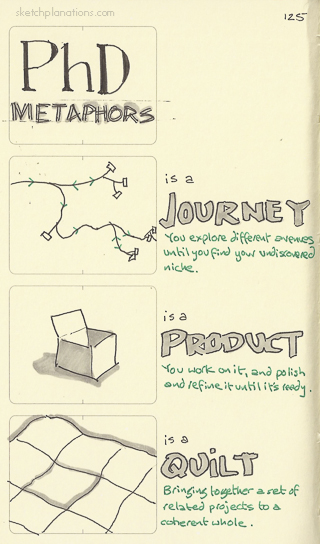 sketchplanations.com
125
PhD
METAPHORS
is a
JOURNEY
You explore different avenues
until you find your undiscovered
niche.
is a
PRODUCT
You work on it, and polish
and refine it until it's ready.
is a
QUILT
Bringing together a set of
related projects to a
coherent whole.